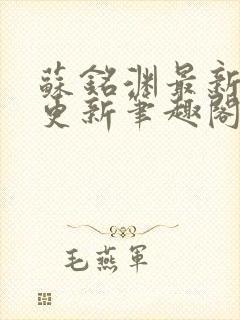 蘇銘淵最新
更新筆趣閣
毛燕軍